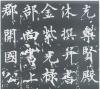 充集賢殿
休撰并書
金紫光祿
部尚書上
郡開國公